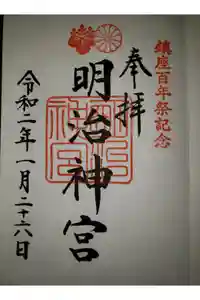 鎮座百年祭記念
奉拝
明治神宮
令和二年一月二十六日
明治神宮